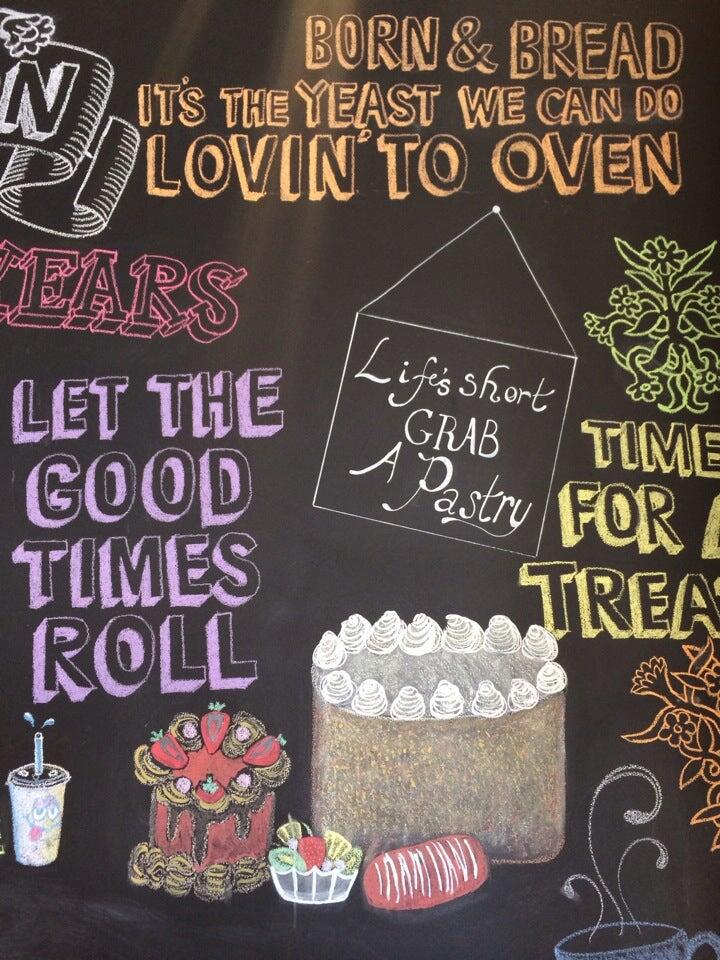 BORN & BREAD
IT'S THE YEAST WE CAN DO
LOVIN' TO OVEN
N
EARS
LET THE
GOOD
TIMES
ROLL
Life's short
GRAB
A Pastry
TIME
FOR A
TREA